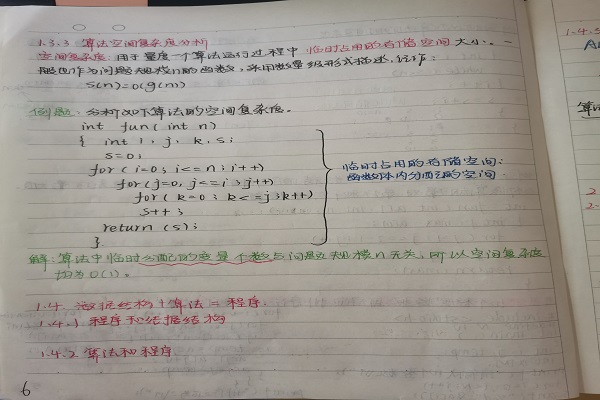 1.3.3 算法空间复杂度分析
空间复杂度:用于量度一个算法运行过程中 临时占用的存储空间 大小。一
般也作为问题规模n的函数,采用数量级形式描述,记作:
S(n)=O(g(n))
例题:分析如下算法的空间复杂度。
int fun( int n)
{ int i, j, k, s;
s=0;
for (i=0; i<=n; i++)
for (j=0; j<=i; j++)
for ( k=0; k<=j; k++)
s++;
return (s);
}
临时占用的存储空间:
函数体内分配的空间
解:算法中临时分配的变量个数与问题规模n无关,所以空间复杂度
均为O(1)。
1.4. 数据结构+算法=程序.
1.4.1 程序和结据结构
1.4.2. 算法和程序
6
1.4.5
算法
2
2.